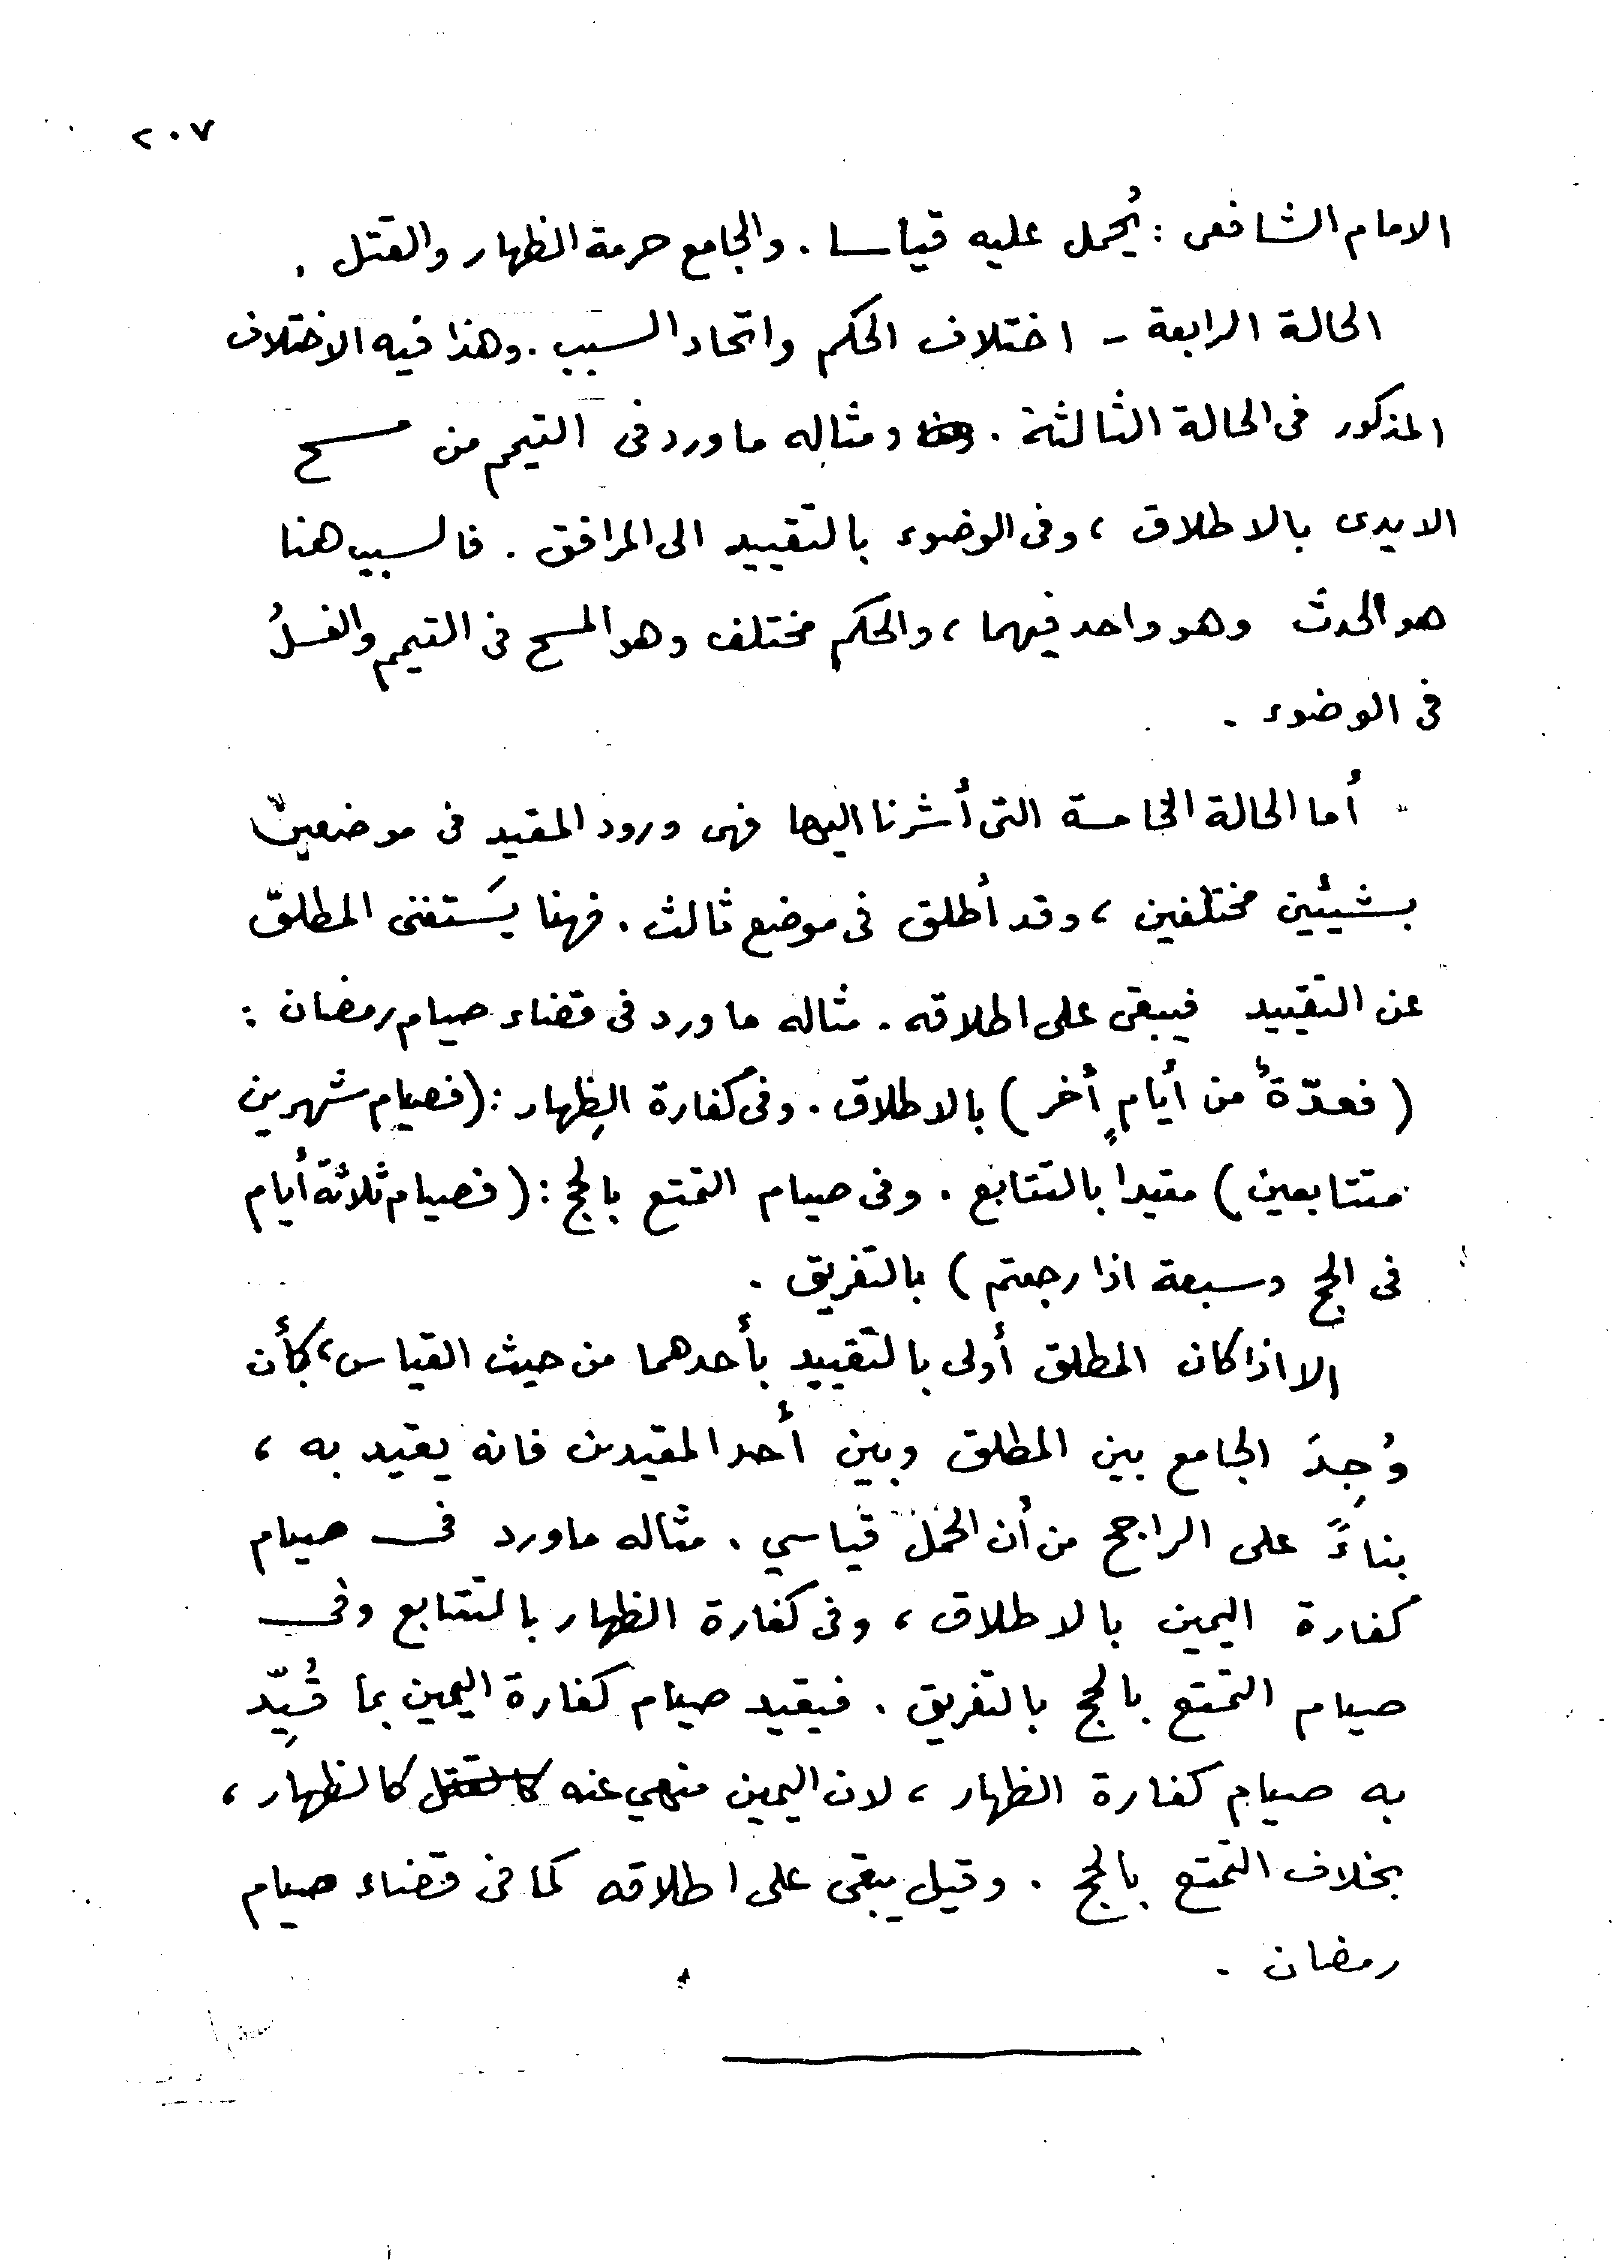 ٢٠٧
الامام الشافعى : يُحمل عليه قياسا . والجامع حرمة الظهار والقتل .
الحالة الرابعة - اختلاف الحكم واتحاد السبب . وهذا فيه الاختلاف
المذكور فى الحالة الثالثة . ومثاله ما ورد فى التيمم من مسح
الايدى بالاطلاق ، وفى الوضوء بالتقييد الى المرافق . فالسبب هنا
هو الحدث وهو واحد فيهما ، والحكم مختلف وهو المسح فى التيمم والغسلُ
فى الوضوء .
أما الحالة الخامسة التى أشرنا اليها فهى ورود المقيد فى موضعين
بشيئين مختلفين ، وقد أطلق فى موضع ثالث . فهنا يَستغنى المطلق
عن التقييد فيبقى على اطلاقه . مثاله ما ورد فى قضاء صيام رمضان :
( فعدّةٌ من أيامٍ أخر ) بالاطلاق . وفى كفارة الظِهار : ( فصيام شهرين
متتابعين ) مقيدا بالتتابع . وفى صيام التمتع بالحج : ( فصيام ثلاثة أيام
فى الحج وسبعة اذا رجعتم ) بالتفريق .
الا اذا كان المطلق أولى بالتقييد بأحدهما من حيث القياس ، كأن
وُجِدَ الجامع بين المطلق وبين أحد المقيدين فانه يقيد به ،
بناءً على الراجح من أن الحمل قياسي . مثاله ما ورد فى صيام
كفارة اليمين بالاطلاق ، وفى كفارة الظهار بالتتابع وفى
صيام التمتع بالحج بالتفريق . فيقيد صيام كفارة اليمين بما قُيِّد
به صيام كفارة الظهار ، لان اليمين منهي عنه كالقتل كالظهار ،
بخلاف التمتع بالحج . وقيل يبقى على اطلاقه كما فى قضاء صيام
رمضان .